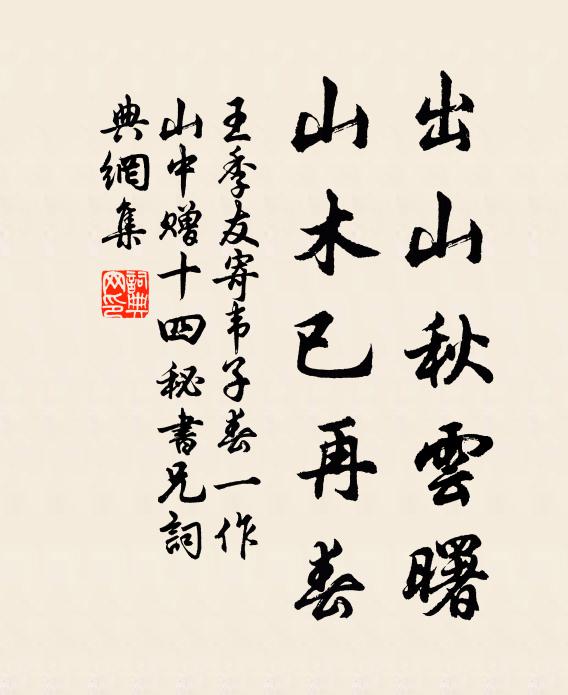 出山秋雲曙
山木已再春
王季友寄韦子春一作
山中赠十四秘書兄詞
典網集
詞典
网印